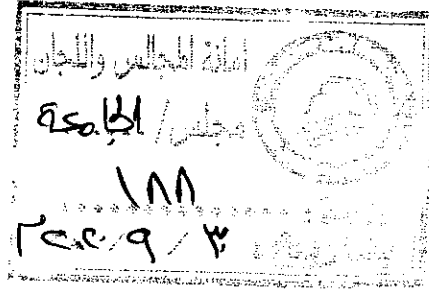 امانة المجالس واللجان
مجلس / الجامعة
١٨٨
٣ / ٩ / ٢٠٢٠